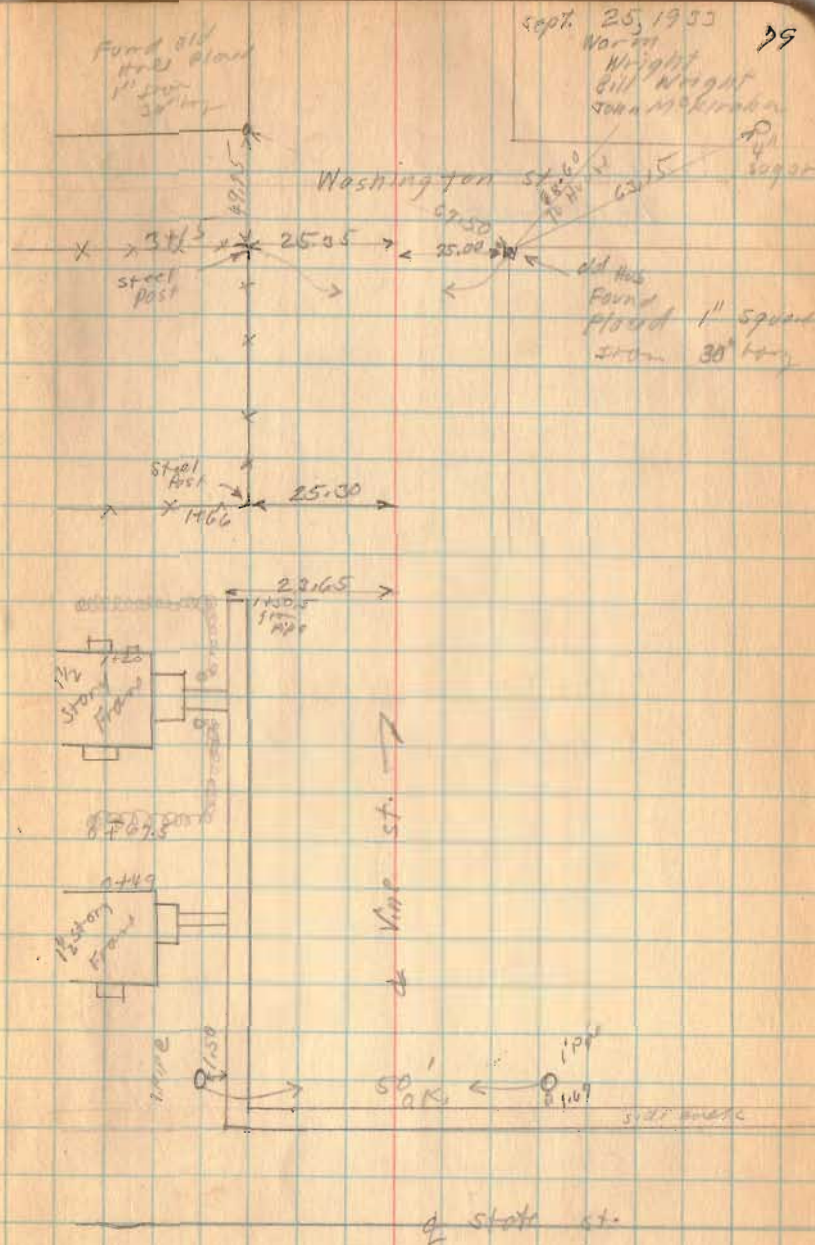 Sept. 25, 1933
Warm
Wright
Bill Wright
John McKinahan
Found old
Placed
1" Iron
4"
Sugar
Washington St.
49.95
68.60
To Hub
63.15
67.50
3+15
25.35
25.00
Steel
Post
old Hub
Found
Placed 1" square
Iron 30" long
Steel
Post
25.30
1+66
23.65
1+50.5
Pipe
1+23
1 1/2
Story
Frame
0+97.5
0+49
1 1/2 Story
Frame
Vine St.
1.50
50'
O.K.
1.67
side walk
State St.